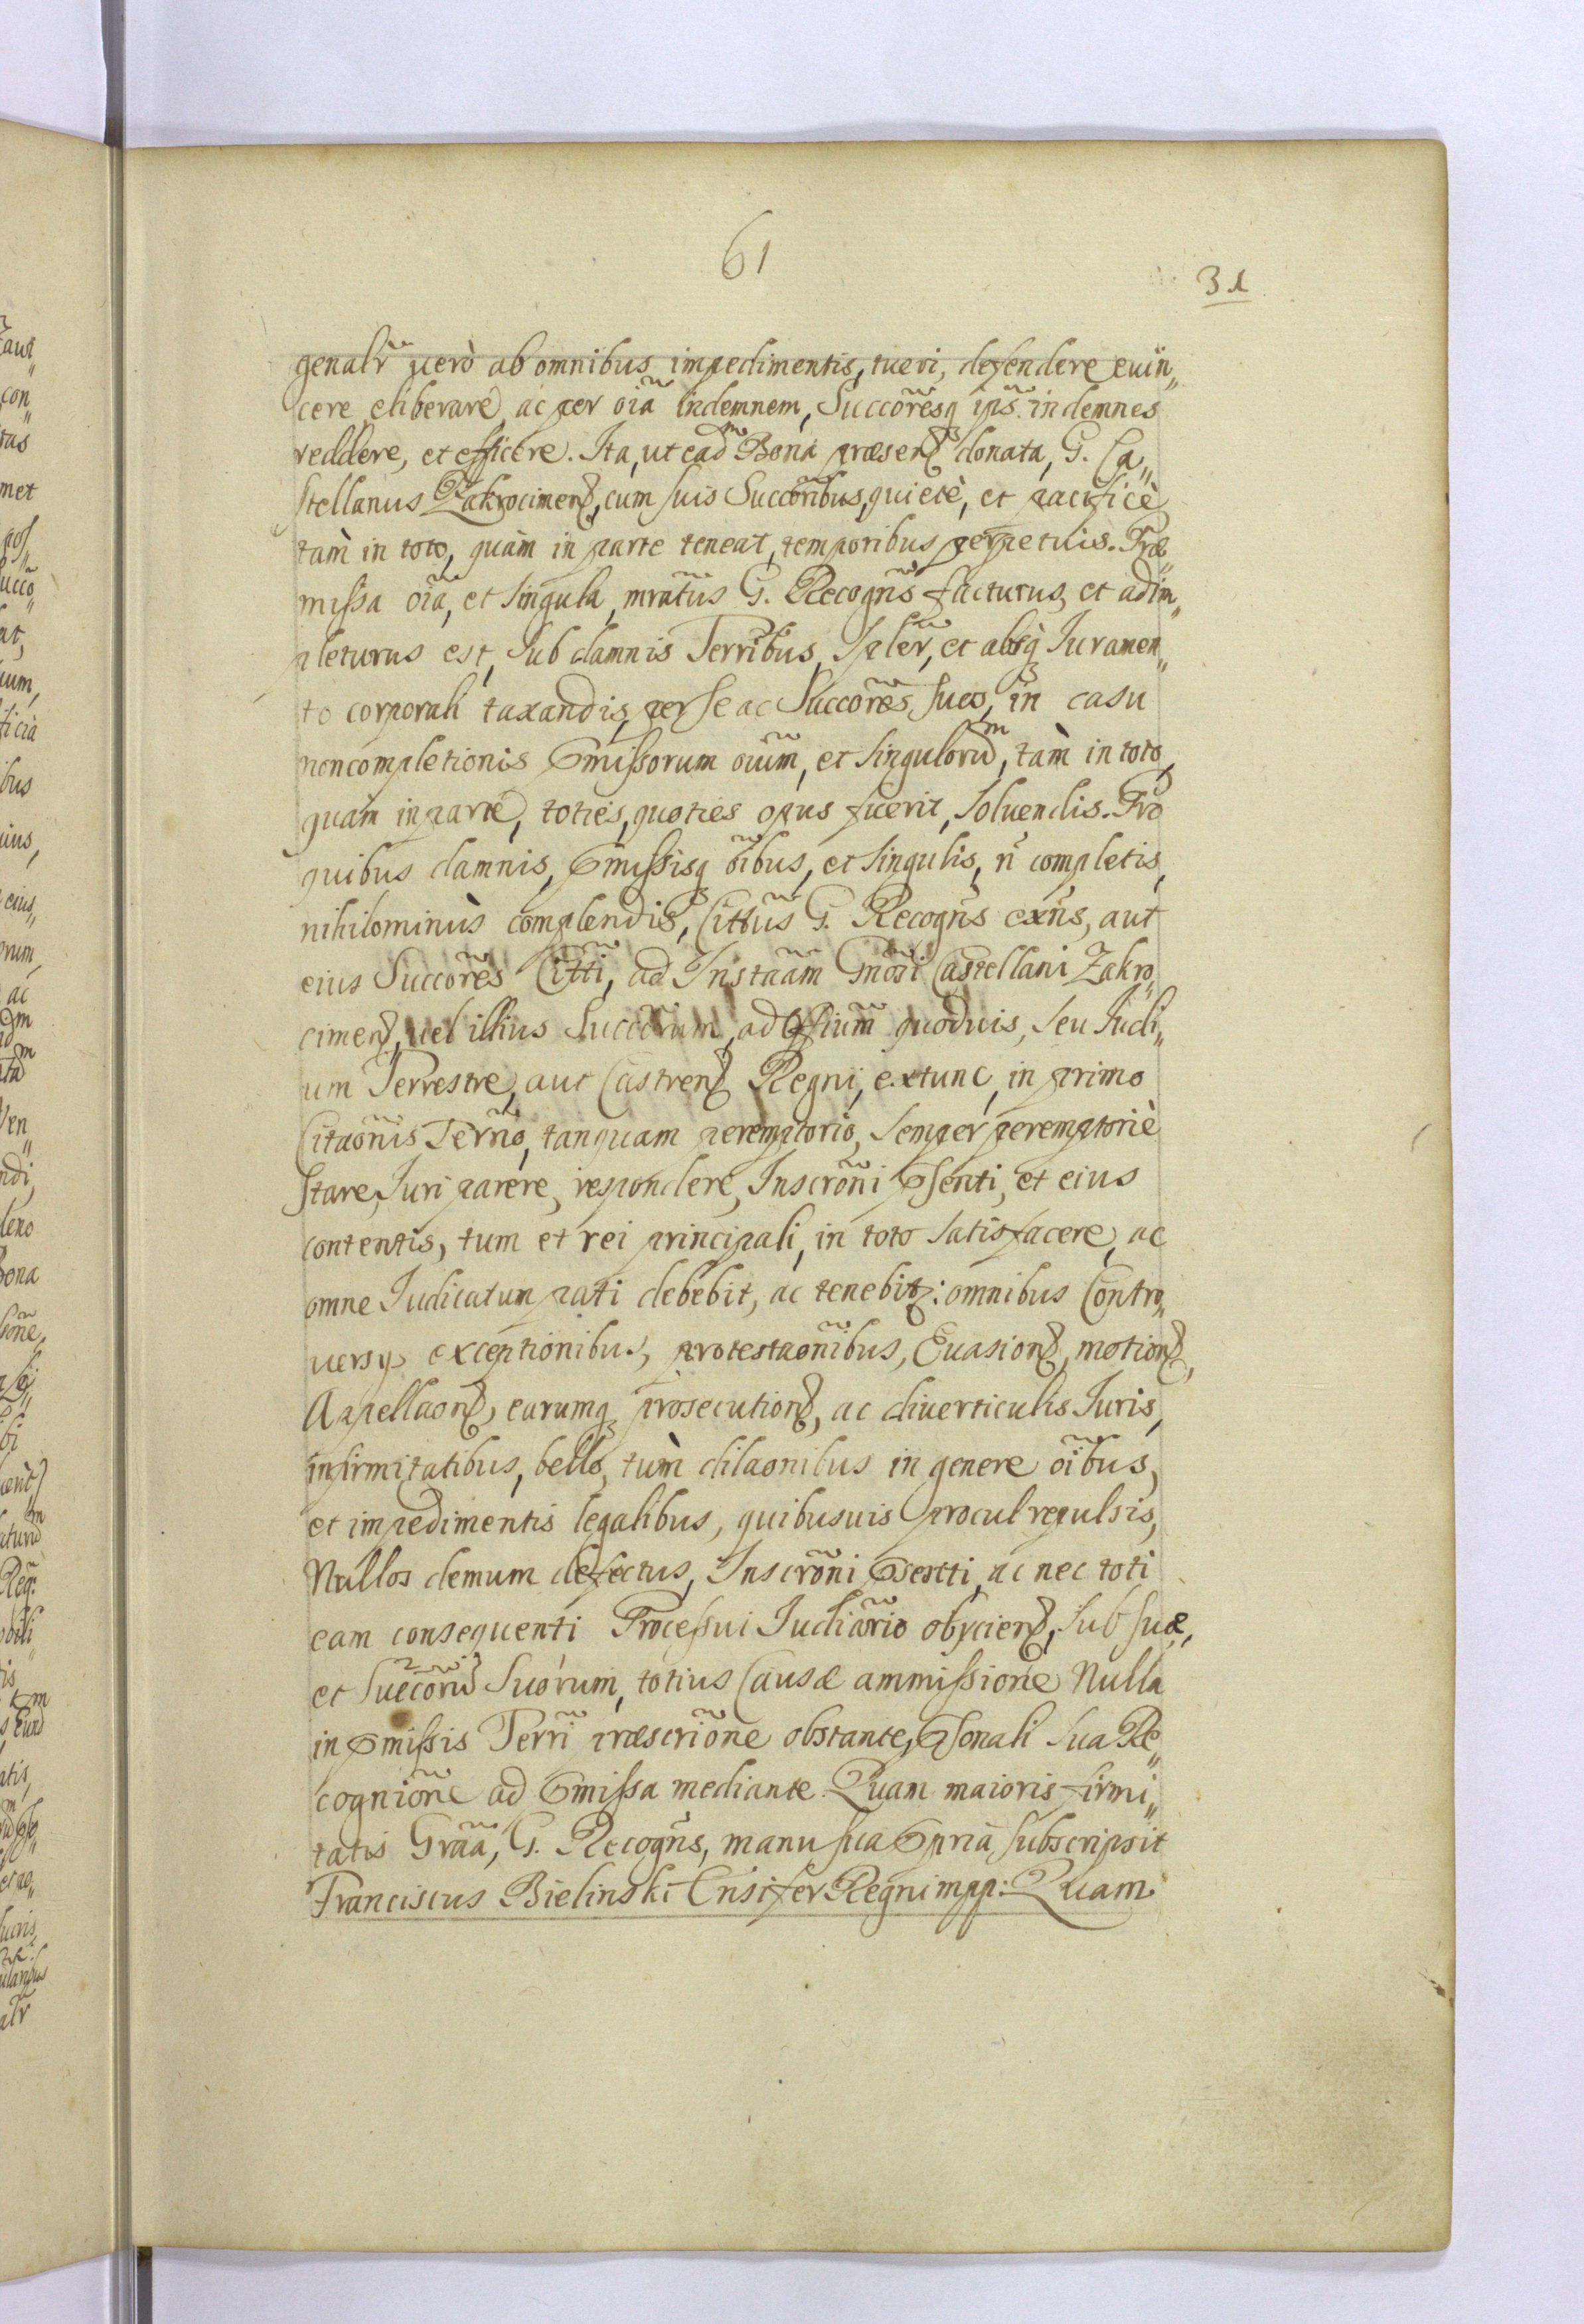 61
31
genalr̃ uerò ab omnibus impedimentis, tueri, defendere euin„
cere eliberare, ac per oĩa indemnem, Succõresq ips̃ indemnes
reddere, et efficere. Ita, ut ead^m Bona præsen̄ donata, G. Ca„
stellanus Zakrocimen̄, cum suis Succõribus, quietè, et pacificè
tam̀ in toto, quàm in parte teneat, temporibus perpetuis. Præ„
missa oĩa, et singula, mrãtus G. Recogñs facturus, et adim„
pleturus est, sub damnis Terribus, Splẽr, et absq Iuramen„
to corporali taxandis, per se ac Succõres suos, in casu
noncompletionis Pmissorum oiũm, et singuloru^m, tàm in toto,
quam in parte, toties, quoties opus fuerit, soluendis. Pro
quibus damnis, Pmissisq õibus, et singulis, ñ completis,
nihilominùs complendis, Cittũs G. Recogñs exñs, aut
eius Succõres Citt̃i, ad Instãam Gnõsi Castellani Zakro„
cimen̄, uel illius Succõrum, ad Offiũm quoduis, seu Iudi„
um Terrestre, aut Castren̄ Regni, extunc, in primo
Citaõnis Ter̃no, tanquam peremptorio, semper peremptoriè
stare, Iuri parere, respondere, Inscrõni Psenti, et eius
contentis, tum et rei principali, in toto satisfacere, ac
omne Iudicatum pati debebit, ac tenebitz: omnibus Contro„
uersys exceptionibus, protestaõnibus, Euasion̄, motion̄,
Appellaon̄, earumq prosecution̄, ac diuerticulis Iuris,
infirmitatibus, bello, tùm dilaonibus in genere õibus,
et impedimentis legalibus, quibusuis procul repulsis,
Nullos demum defectus, Inscrõni Psentti, ac nec toti
eam consequenti Processui Iudiãrio obycien̄, sub suæ,
et Succõru^m suorum, totius Causæ ammissione Nulla
in Pmissis Terr̃i præscriõne obstante, Psonali sua Re„
cogniõne ad Pmissa mediante Quam maioris firmi„
tatis Grãa, G. Recogñs, manu sua Ppria subscripsit
Franciscus Bielinski Ensifer Regni mpp: Quam